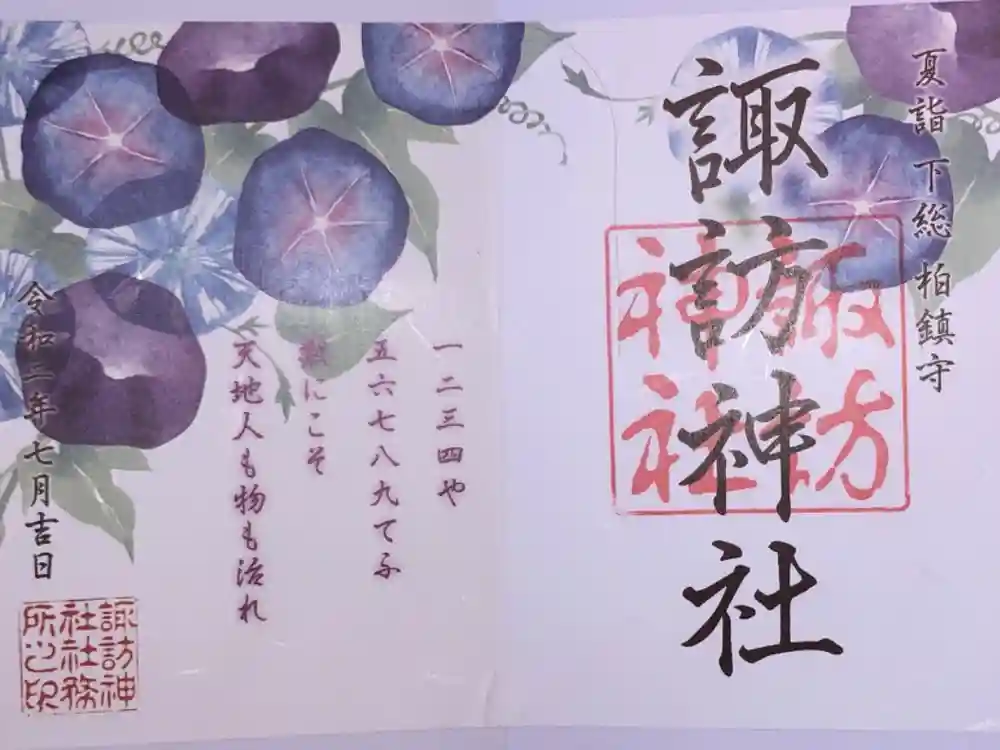 夏詣 下総 柏鎮守
諏訪神社
諏訪
神社
一二三四や
五六七八九てふ
数にこそ
天地人も物も活れ
令和三年七月吉日
諏訪神
社社務
所之印